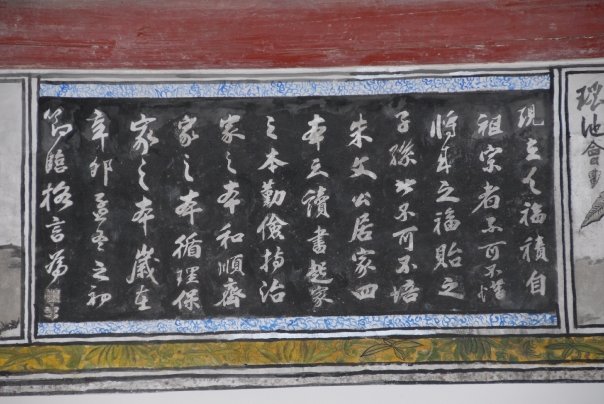 瑤池會
現在之福積自
祖宗者不可不惜
將來之福貽之
子孫者不可不培
朱文公居家四
本云讀書起家
之本勤儉持治
家之本和順齊
家之本循理保
家之本歲在
辛卯孟冬之初
節臨格言